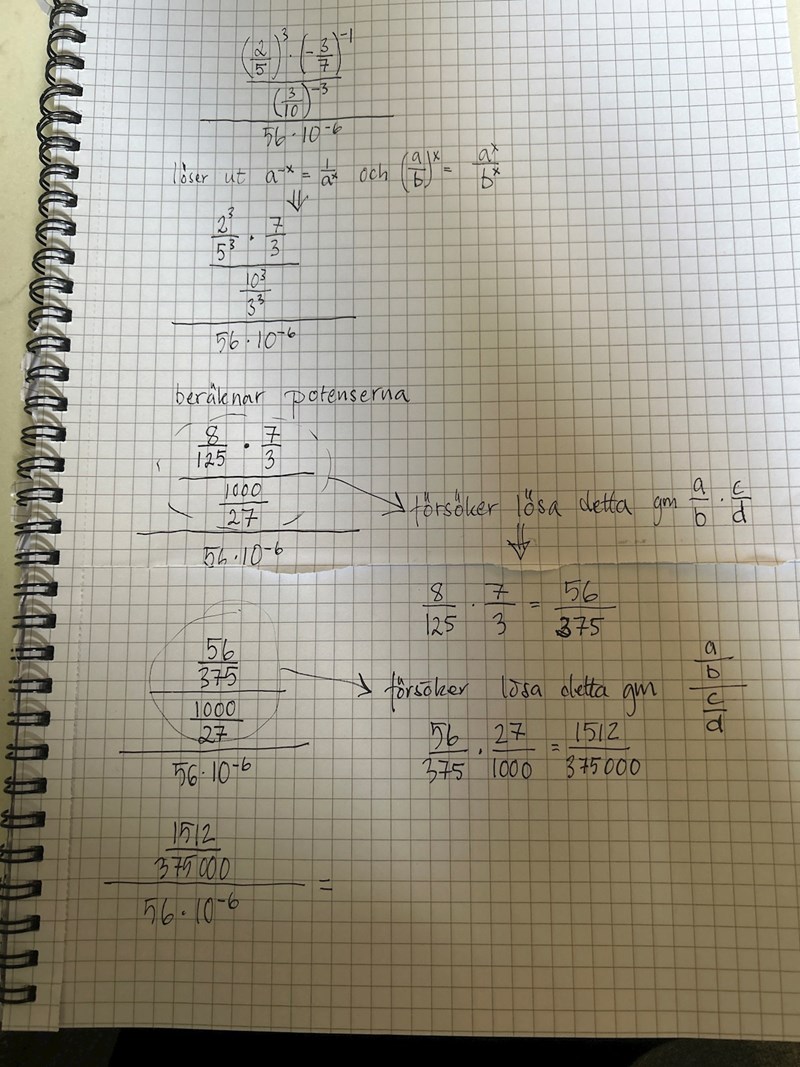 ((2/5)^3 · (-3/7)^-1) / (3/10)^-3
56 · 10^-6
löser ut a^-x = 1/a^x och (a/b)^x = a^x/b^x
⇓
(2^3/5^3 · 7/3) / (10^3/3^3)
56 · 10^-6
beräknar potenserna
(8/125 · 7/3) / (1000/27)
→ försöker lösa detta gm a/b · c/d
56 · 10^-6
⇓
8/125 · 7/3 = 56/375
(56/375) / (1000/27)
→ försöker lösa detta gm (a/b) / (c/d)
56 · 10^-6
56/375 · 27/1000 = 1512/375000
1512/375000
56 · 10^-6 =